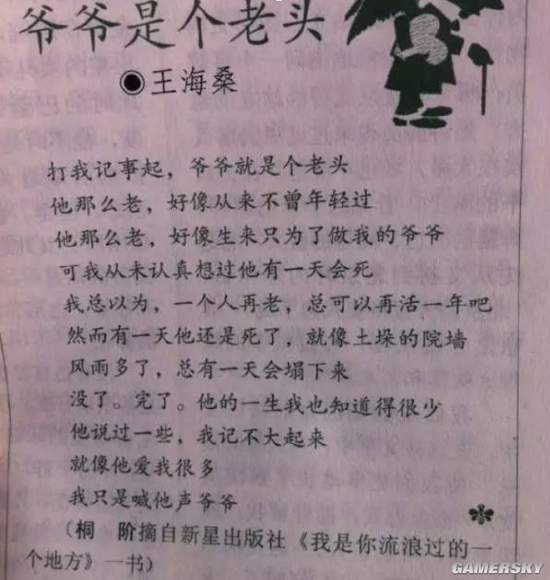 爷爷是个老头
●王海桑
打我记事起，爷爷就是个老头
他那么老，好像从来不曾年轻过
他那么老，好像生来只为了做我的爷爷
可我从未认真想过他有一天会死
我总以为，一个人再老，总可以再活一年吧
然而有一天他还是死了，就像土垛的院墙
风雨多了，总有一天会塌下来
没了。完了。他的一生我也知道得很少
他说过一些，我记不大起来
就像他爱我很多
我只是喊他声爷爷
（桐　阶摘自新星出版社《我是你流浪过的一
个地方》一书）
GAMERSKY